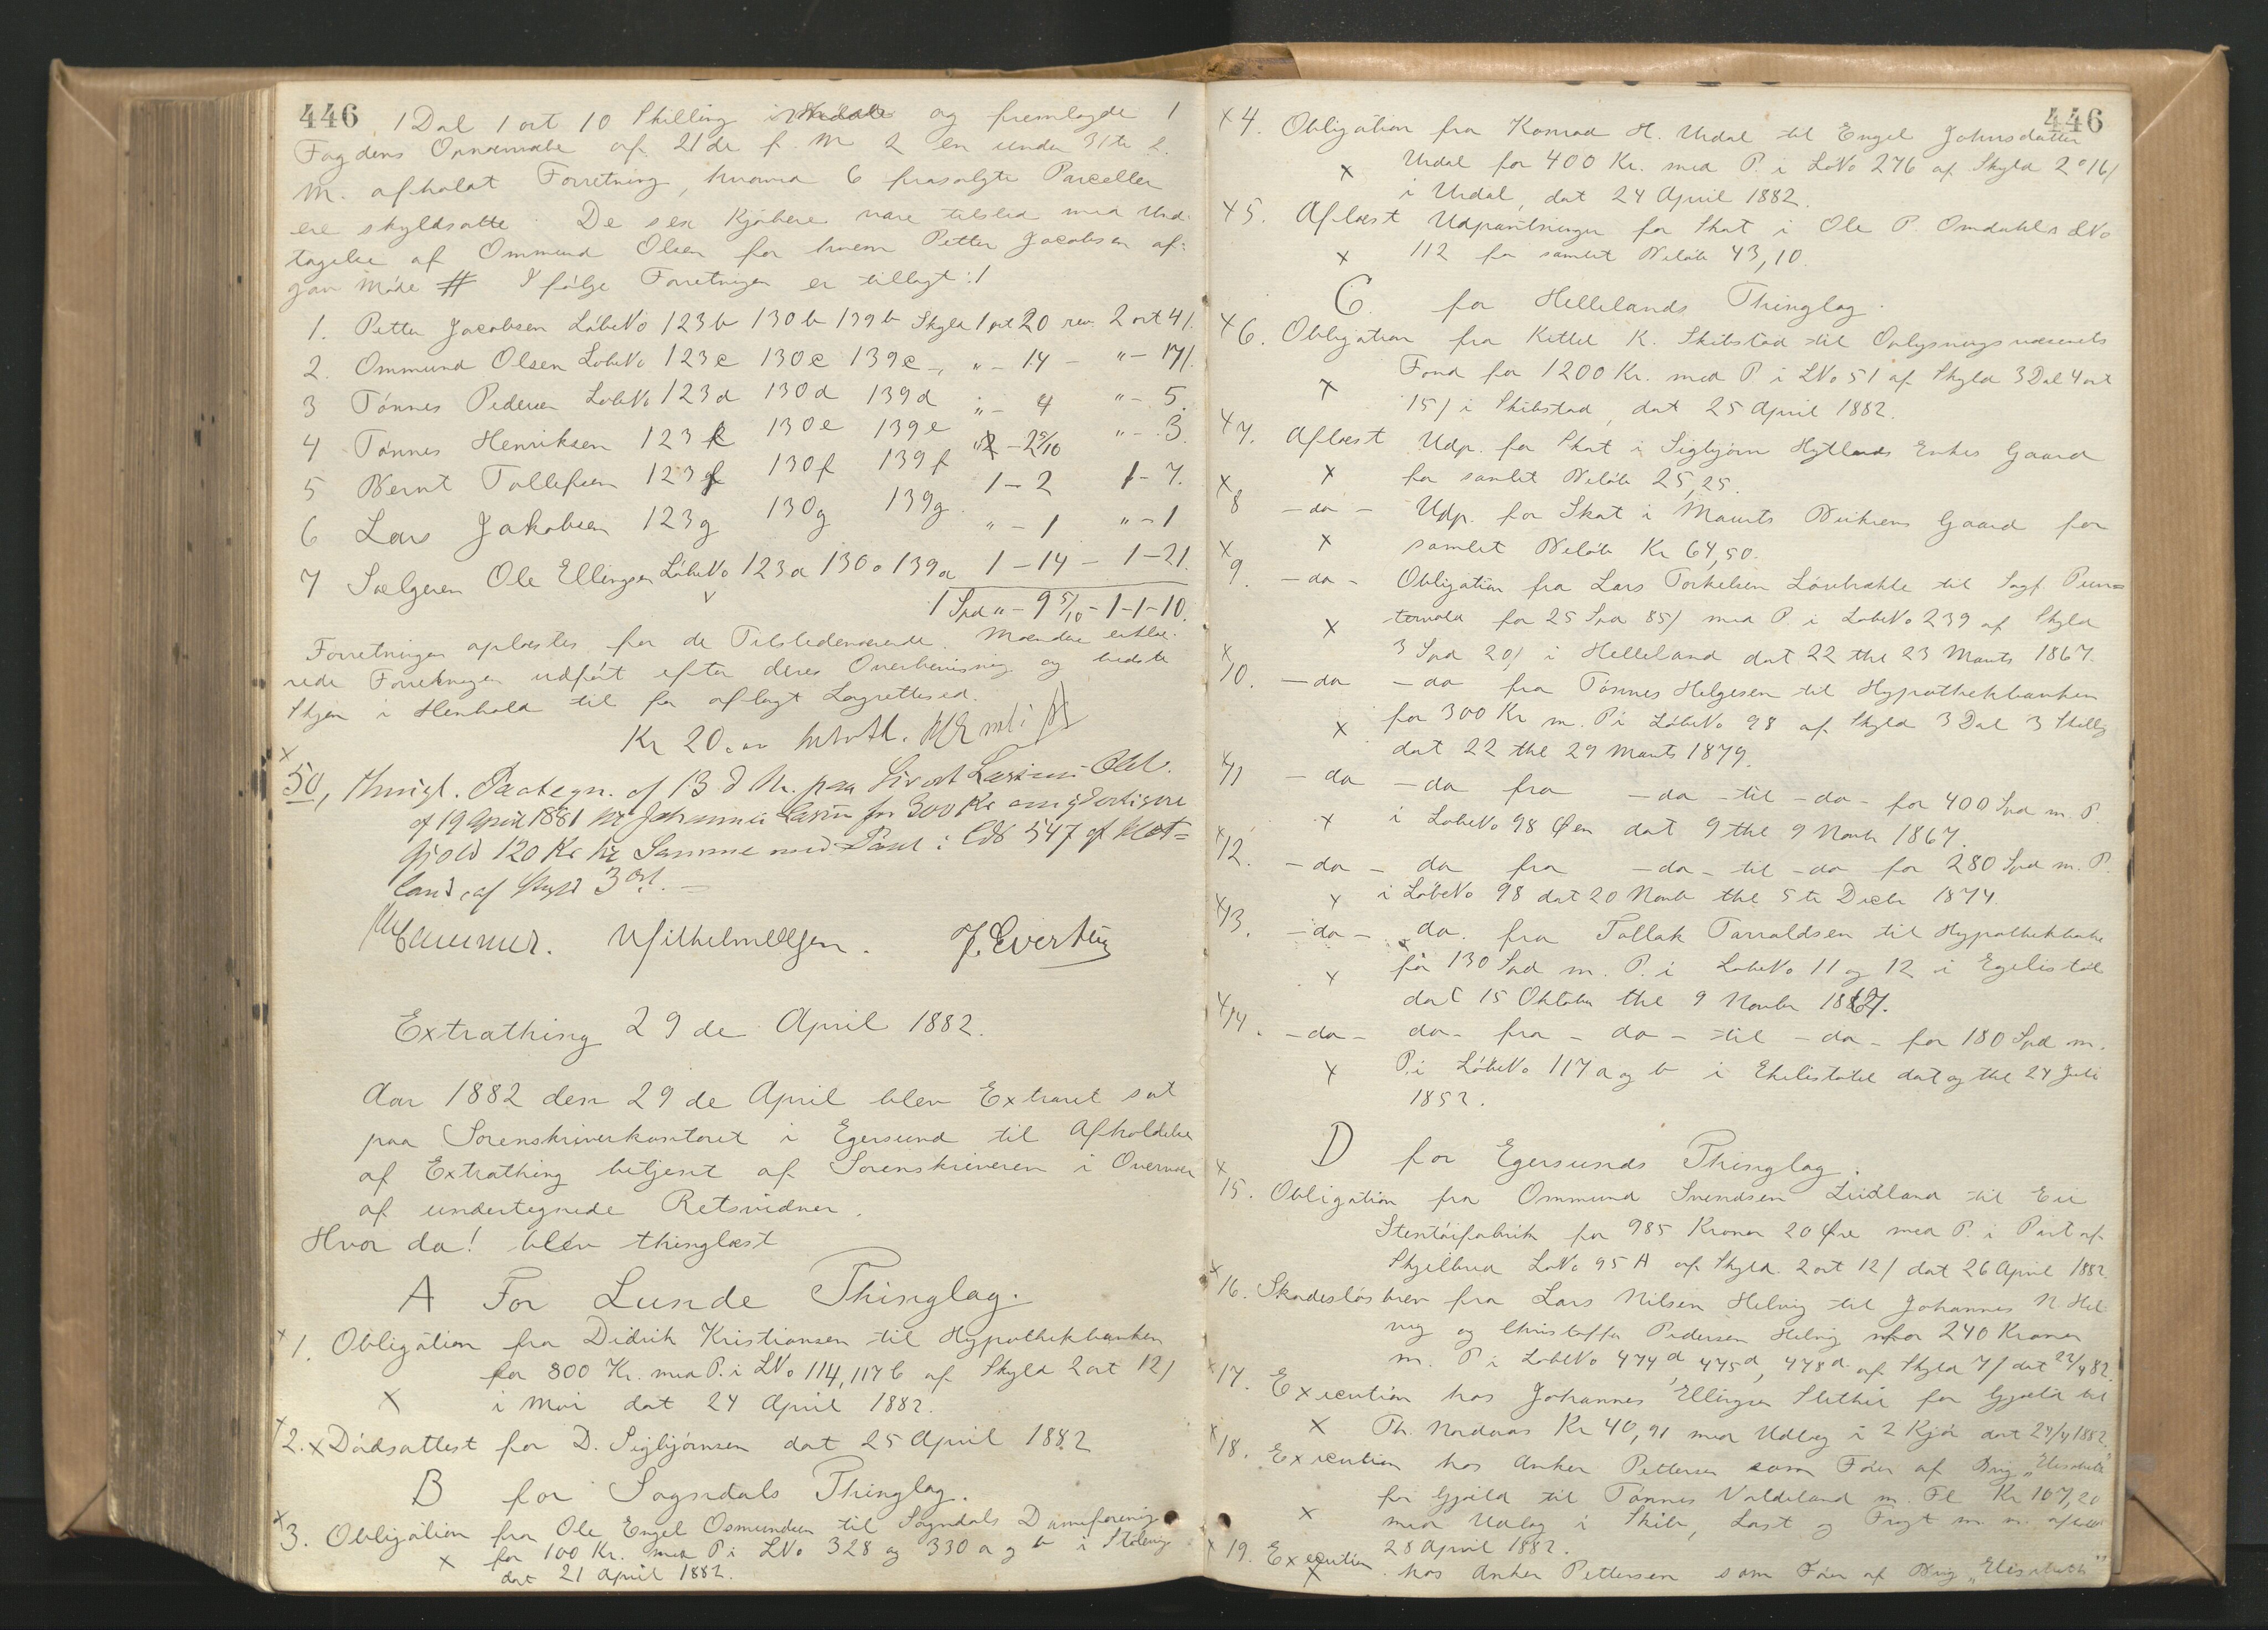 446 1 Dal 1 ort 10 Skilling og fremlagde 1
Fogdens Opnævnelse af 21de f. M 2 en under 31te f.
M. afholdt Forretning, hvorved 6 frasolgte Parceller
ere skyldsatte. De sex Kjøbere vare tilsted med Und-
tagelse af Ommund Olsen for hvem Petter Jacobsen af-
gav Møde # I følge Forretningen er tillagt:1
1. Petter Jacobsen LøbeNo 123b 130b 139b Skyld 1 ort 20 rev. 2 ort 4/.
2. Ommund Olsen LøbeNo 123c 130c 139c - " - 14 - " - 17/.
3 Tønnes Pedersen LøbeNo 123d 130d 139d " - 4 " - 5.
4 Tønnes Henriksen 123e 130e 139e " - 2 5/10 " - 3.
5 Bernt Tollefsen 123f 130f 139f 1 - 2 1 - 7.
6 Lars Jakobsen 123g 130g 139g. " - 1 " - 1
7 Sælgeren Ole Ellingsen LøbeNo 123a 130a 139a 1 - 14 - 1 - 21.
1 Spd " - 9 5/10 - 1-1-10.
Forretningen oplæstes for de Tilstedeværende. Mændene erklæ-
rede Forretningen udført efter deres Overbevisning og bedste
Skjøn i Henhold til før aflagt Lagrettesed.
Kr 20.
50, Thingl. Paategn. af 13 d M. paa Sivert Larsens Obl.
af 19 April 1881 til Johannes Larsen for 300 Kr
Gjæld 120 Kr til Samme med Pant i LNo 547 af
land, af Skyld 3 Ort. -
J. Evertsen
Extrathing 29de April 1882.
Aar 1882 den 29de April blev Extraret sat
paa Sorenskriverkontoret i Egersund til Afholdelse
af Extrathing betjent af Sorenskriveren i Overvær
af undertegnede Retsvidner.
Hvor da! blev thinglæst
A For Lunde Thinglag.
1. Obligation fra Didrik Kristiansen til Hypothekbanken
for 800 Kr. med P. i LNo 114, 117 b af Skyld 2 ort 12/
i Moi dat 24 April 1882.
2. Dødsattest for D. Sigbjørnsen dat 25 April 1882
B for Sogndals Thinglag.
3. Obligation fra Ole Engel Osmundsen til Sogndals
for 100 Kr. med P i LNo 328 og 330 a og b i
dat 21 April 1882.
446
4. Obligation fra Konrad H. Urdal til Engel Johnsdatter
Urdal for 400 Kr. med P. i LøNo 276 af Skyld 2 o 16/
i Urdal, dat 24 April 1882.
5. Aflæst Udpantninger for Skat i Ole P. Omdahls LNo
112 for samlet Beløb 43,10.
C. for Hellelands Thinglag.
6. Obligation fra Kittel K. Skibstad til Oplysningsvæsenets
Fond for 1200 Kr. med P i LNo 51 af Skyld 3 Dal 4 ort
15/ i Skibstad, dat 25 April 1882.
7. Aflæst Udp. for Skat i Sigbjørn Hytlands Enkes Gaard
for samlet Beløb 25,25.
8 - do - Udp. for Skat i Maurits Birkrems Gaard for
samlet Beløb Kr 64,50.
9. - do - Obligation fra Lars Torkelsen Løvbrække til Sogt Pun=
tervold for 25 Spd 85/ med P. i LøbeNo 239 af Skyld
3 Spd 20/ i Helleland dat 22 thl 23 Marts 1867.
10. - do - do fra Tønnes Helgesen til Hypothekbanken
for 300 Kr m. P i LøbeNo 98 af Skyld 3 Dal 3 Skillg
dat 22 thl 29 Marts 1879.
11 - do - do fra - do - til - do - for 400 Spd m. P.
i LøbeNo 98 Øen dat 9 thl 9 Novbr 1867.
12. - do - do fra - do - til - do for 280 Spd m. P.
i LøbeNo 98 dat 20 Novbr thl 5te Decbr 1874.
13. - do - do. fra Tollak Tarraldsen til Hypothekbanke
for 130 Spd m. P. i LøbeNo 11 og 12 i Egelistøl
dat 15 Oktober thl 9 Novbr 1867.
14. - do - do - fra - do - til - do - for 180 Spd m.
P. i LøbeNo 117 a og b i Ekelistølel dat og thl 24 Juli
1852.
D for Egersunds Thinglag.
15. Obligation fra Ommund Svendsen Liidland til Eie
Stentøifabrik for 985 Kroner 20 Øre med P. i Part af
Skjelbred LøNo 95 A af Skyld 2 ort 12/ dat 26 April 1882
16. Skadesløsbrev fra Lars Nilsen Helvig til Johannes N Hel-
vig og Christoffer Pedersen Helvig for 240 Kroner
m. P i LøbeNo 474 d, 475 d, 478 d af Skyld 7/ dat 22/4 82.
17. Execution hos Johannes Ellingsen Slettebø for Gjæld til
Th. Nordaas Kr 40,91 med Udlæg i 2 Kjør dat 24/4 1882.
18. Execution hos Anker Pettersen som Fører af Brig "Elisabeth"
for Gjæld til Tønnes Valdeland m. Fl Kr 107,20
med Udlæg i Skib, Last og Fragt m. m. afholdt
28 April 1882.
19. Execution hos Anker Pettersen som Fører af Brig "Elisabeth"